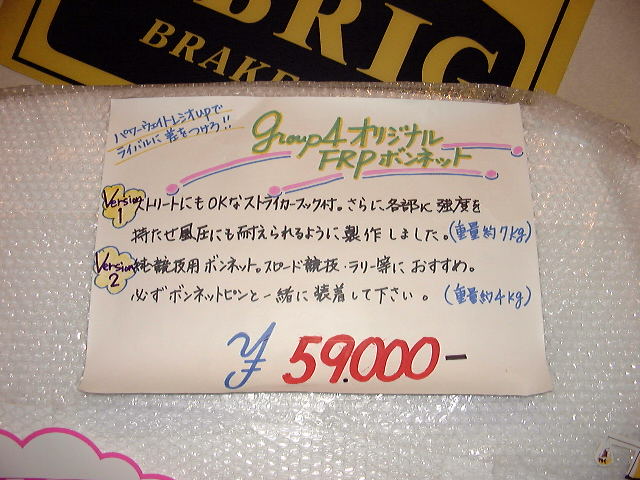 BRIG
BRAKE
パワーウェイトレシオupで
ライバルに差をつけろ!!
Group4 オリジナル
FRPボンネット
Version 1 ストリートにもOKなストライカーフック付。さらに各部に強度を
持たせ風圧にも耐えられるように製作しました。(重量約7kg)
Version 2 純競技用ボンネット。スピード競技・ラリー等におすすめ。
必ずボンネットピンと一緒に装着して下さい。(重量約4kg)
¥59.000-